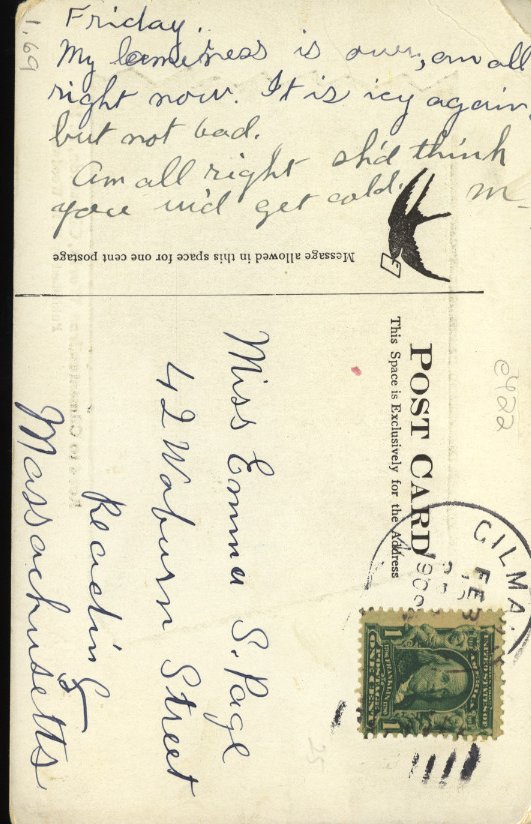 Friday.
My lameness is over, am all
right now. It is icy again,
but not bad.
Am all right sh'd think
you w'd get cold. M-
Message allowed in this space for one cent postage
POST CARD
This Space is Exclusively for the Address
Miss Emma S. Page
42 Woburn Street
Reading
Massachusetts
GILMA
FEB
190
UNITED STATES OF
AMERICA
FRANKLIN
1 ONE CENT 1
1.69
2422
25